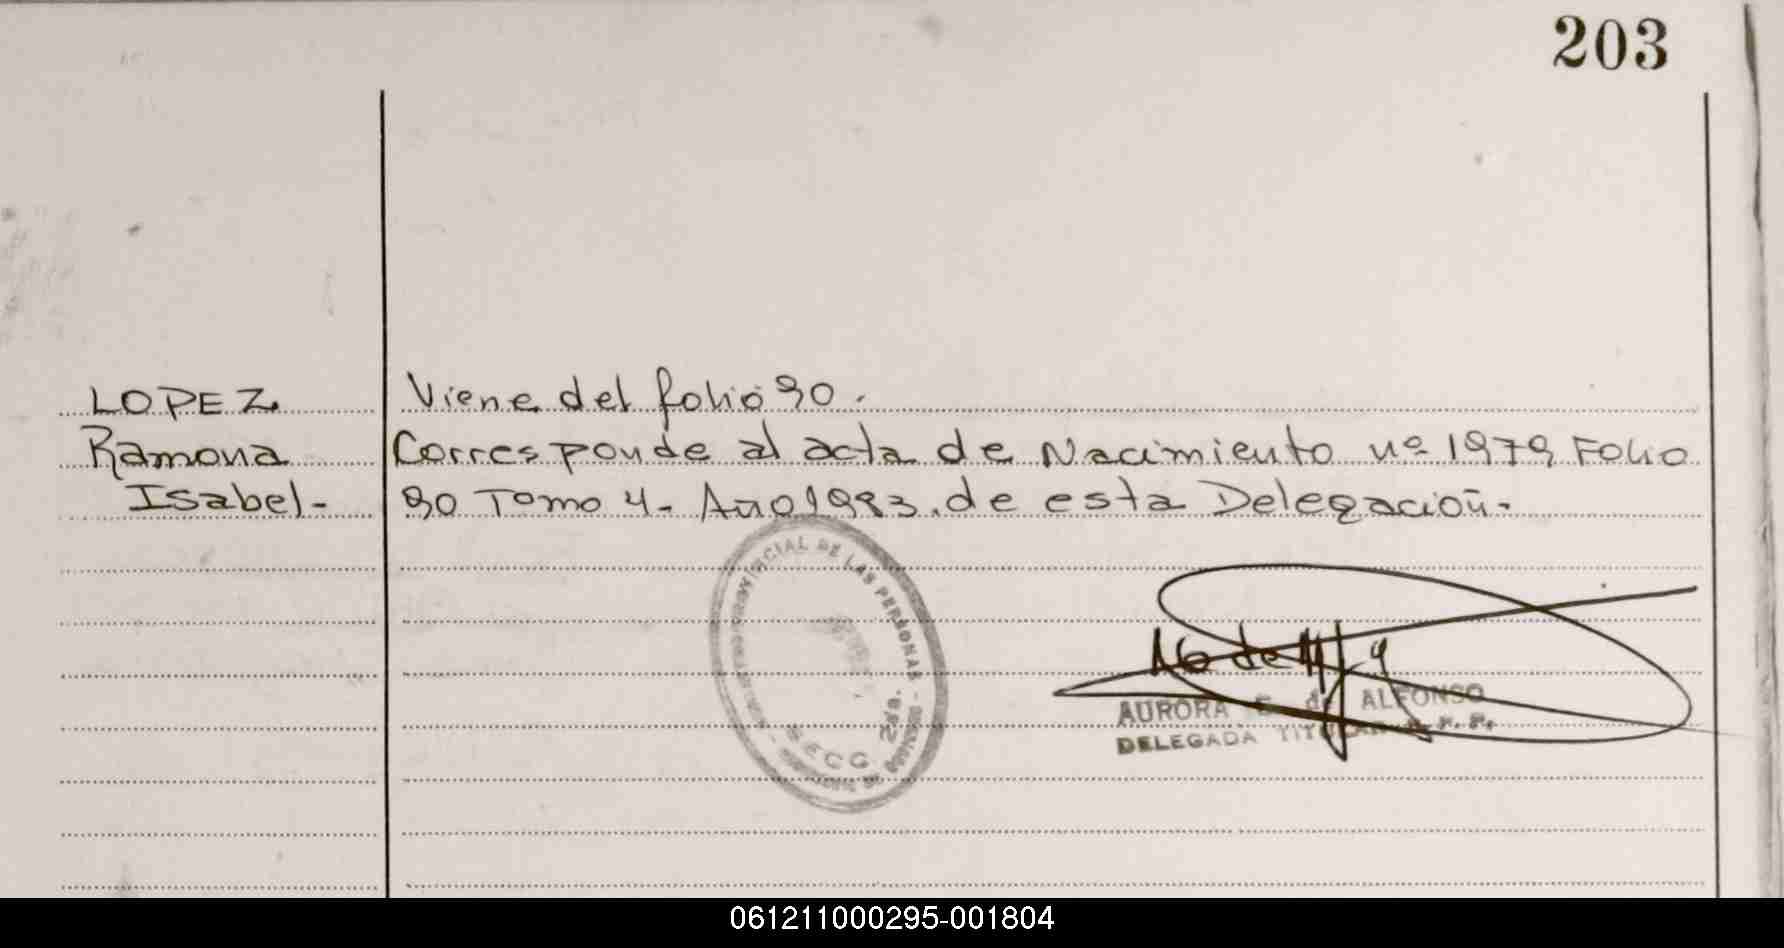 203
LOPEZ
Ramona
Isabel-
Viene del folio 90.
Corresponde al acta de Nacimiento nº 1979 Folio
90 Tomo 4- Año 1983. de esta Delegación.
PROVINCIAL DE LAS PERSONAS -
SECC 2da.
AURORA E. de ALFONSO
DELEGADA TITULAR R. P.
061211000295-001804